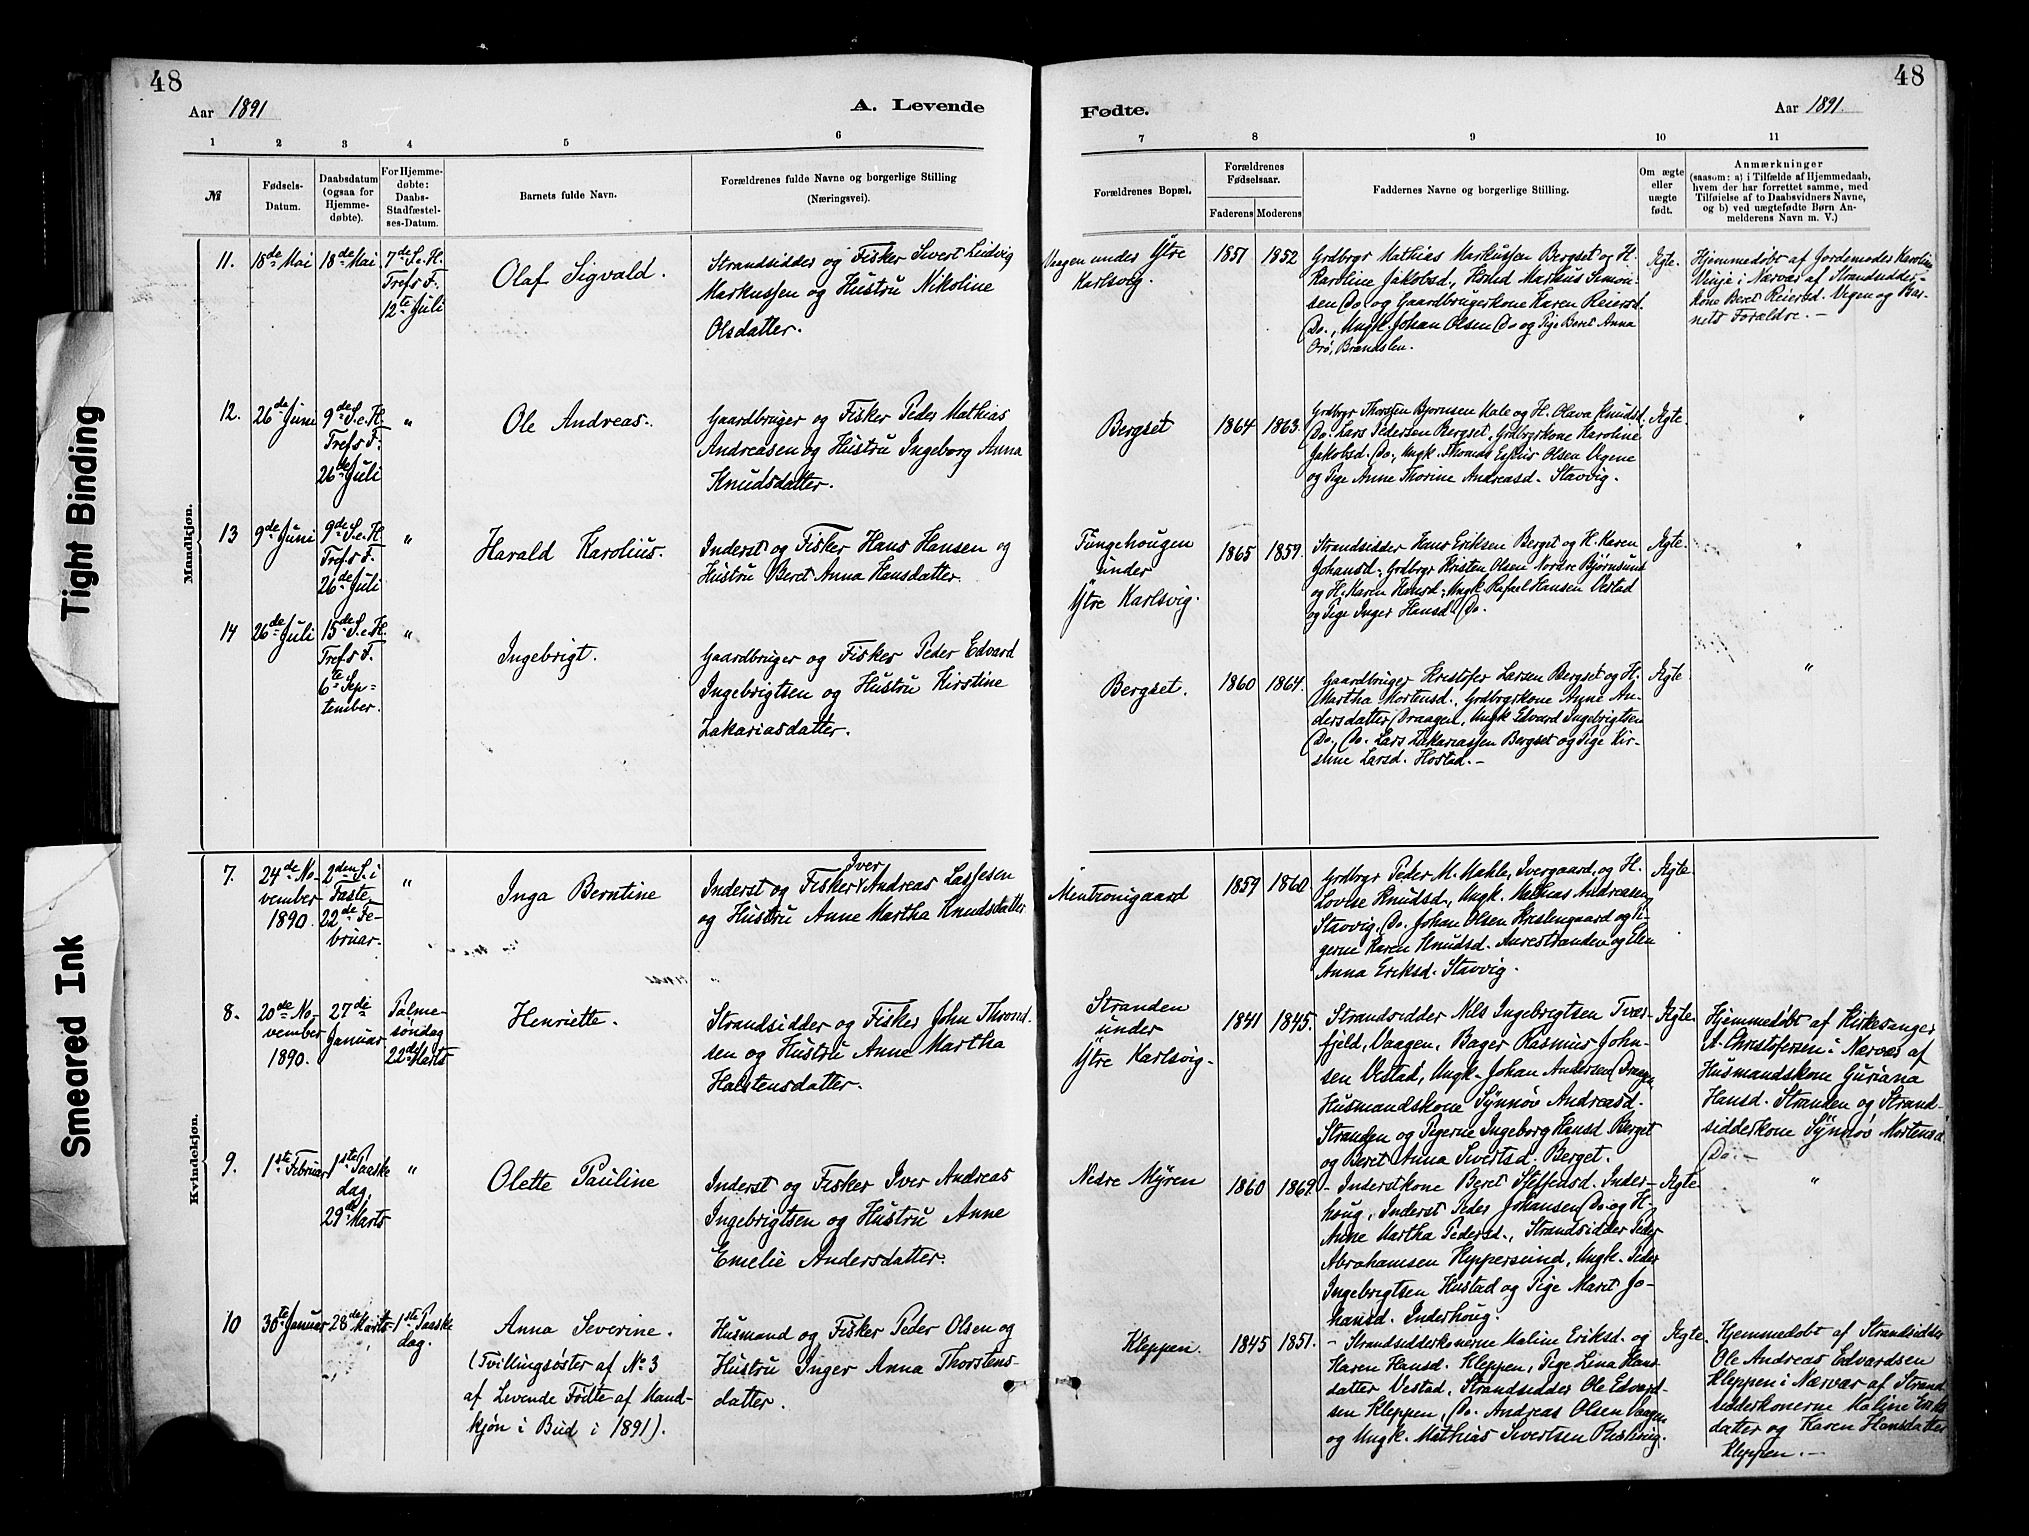 48
48
Aar 1891
A. Levende
Fødte.
Aar 1891.
1 2 3 4 5 6 7 8 9 10 11
№
Fødsels-
Datum.
Daabsdatum
(ogsaa for
Hjemme-
døbte).
For Hjemme-
døbte:
Daabs-
Stadfæstel-
ses-Datum.
Barnets fulde Navn.
Forældrenes fulde Navne og borgerlige Stilling
(Næringsvei).
Forældrenes Bopæl.
Forældrenes
Fødselsaar.
Faderens Moderens
Faddernes Navne og borgerlige Stilling.
Om ægte
eller
uægte
født.
Anmærkninger
(saasom: a) i Tilfælde af Hjemmedaab,
hvem der har forrettet samme, med
Tilføielse af to Daabsvidners Navne,
og b) ved uægtefødte Børn An-
melderens Navn m. V.)
Mandkjøn.
11.
18de Mai
18de Mai
7de S.e.H.
Trefs F.
12te Juli
Olaf Sigvald.
Strandsidder og Fisker Sivert Ludvig
Markussen og Hustru Nikoline
Olsdatter.
Vaagen under Ytre
Karlsvig.
1851
1852
Grdbrgr Mathias Markussen Bergset og H.
Karoline Jakobsd., Hosted Markus Simon-
sen Do og Gaardbrugerkone Karen Reiersd.
Do., Ungk. Johan Olsen Do og Pige Beret Anna
Orø, Brandslen.
Ægte.
Hjemmedøbt af Jordemoder Karoline
Vinje i Nærvær af Strandsidder-
kone Beret Reiersd. Vegen og Bar-
nets Forældre. –
12.
26de Juni
9de S.e.H.
Trefs F.
26de Juli
"
Ole Andreas.
Gaardbruger og Fisker Peder Mathias
Andreasen og Hustru Ingeborg Anna
Knudsdatter.
Bergset
1864
1863.
Grdbrgr Thorsten Bjørnsen Male og H. Olava Knudsd.
Do. Lars Pedersen Bergset, Grdbrgrkone Karoline
Jakobsd. Do., Ungk. Thomas Olsen Vegene
og Pige Anne Thorine Andreasd. Stavvig.
Ægte.
"
13
9de Juni
9de S.e.H.
Trefs F.
26de Juli
"
Harald Karolius.
Inderst og Fisker Hans Hansen og
Hustru Beret Anna Hansdatter.
Tungehougen
under
Ytre Karlsvig.
1865
1859.
Strandsidder Hans Eriksen Berget og H. Karen
Johansd., Grdbrgr Kristen Olsen Nordre Bjørnsund
og H. Karen Hansd., Ungk. Rafael Hansen Vestad
og Pige Inger Hansd. Do.
Ægte.
"
14
26de Juli
15de S.e.H.
Trefs F.
6te Sep-
tember.
"
Ingebrigt.
Gaardbruger og Fisker Peder Edvard
Ingebrigtsen og Hustru Kirstine
Zakariasdatter.
Bergset.
1860
1864.
Gaardbruger Kristofer Larsen Bergset og H.
Martha Mortensd., Grdbrgrkone Anne An-
dersdatter Draagen, Ungk Edvard Ingebrigtsen
Do., Do. Lars Zakariassen Bergset og Pige Kir-
stine Larsd. Hostad. –
Ægte
"
Kvindekjøn.
7.
24de No-
vember
1890.
2den S. i
Faste,
22de Fe-
bruar.
"
Inga Berntine
Inderst og Fisker Iver Andreas Lassesen
og Hustru Anne Martha Knudsdatter
Mentzonigaard
1859
1860
Grdbrgr Peder M. Mahle, Ivergaard, og H.
Lovise Knudsd., Ungk. Mathias Andreasen
Stavvig, Do. Johan Olsen Kristengaard og Pi-
gerne Karen Knudsd. Aurestranden og Elen
Anna Eriksd. Stavvig.
Ægte
8.
20de No-
vember
1890.
27de
Januar
Palme-
søndag
22de Marts
Henriette.
Strandsidder og Fisker John Thrond-
sen og Hustru Anne Martha
Halstensdatter.
Stranden
under
Ytre Karlsvig.
1841
1845.
Strandsidder Nils Ingebrigtsen Tver-
fjeld, Vaagen, Bager Rasmus John-
sen Vestad, Ungk. Johan Andersen Draagen
Husmandskone Synnøv Andreasd.
Stranden og Pigerne Ingeborg Hansd Berget
og Beret Anna Sivertsd. Berget.
Ægte
Hjemmedøbt af Kirkesanger
A. Christofersen i Nærvær af
Husmandskone Guriana
Hansd. Stranden og Strand-
sidderkone Synnøv Mortensd
Do. –
9.
1ste Februar
1ste Paaske
dag,
29de Marts
"
Olette Pauline
Inderst og Fisker Iver Andreas
Ingebrigtsen og Hustru Anne
Emelie Andersdatter.
Nedre Myren
1860
1869.
– Inderstkone Beret Steffensd. Inder-
houg, Inderst Peder Johansen Do og H.
Anne Martha Pedersd., Strandsidder Peder
Abrahamsen Kleppersund, Ungk. Peder
Ingebrigtsen Hustad og Pige Marit Jo-
hansd. Inderhoug.
Ægte
"
10
30te Januar
28de Marts
1ste Paaske
dag.
Anna Severine.
(Tvillingsøster af No 3
af Levende Fødte af Mand-
kjøn i Bud i 1891).
Husmand og Fisker Peder Olsen og
Hustru Inger Anna Thorstens-
datter.
Kleppen.
1845
1851.
– Strandsidderkonerne Maline Eriksd. og
Karen Hansd. Kleppen, Pige Lina Hans-
datter Vestad, Strandsidder Ole Edvard-
sen Kleppen, Do. Andreas Olsen Vaagen
og Ungk. Mathias Sivertsen
Ægte
Hjemmedøbt af Strandsidder
Ole Andreas Edvardsen
Kleppen i Nærvær af Strand-
sidderkonerne Maline Eriks
datter og Karen Hansdatter
Kleppen. –
Tight Binding
Smeared Ink